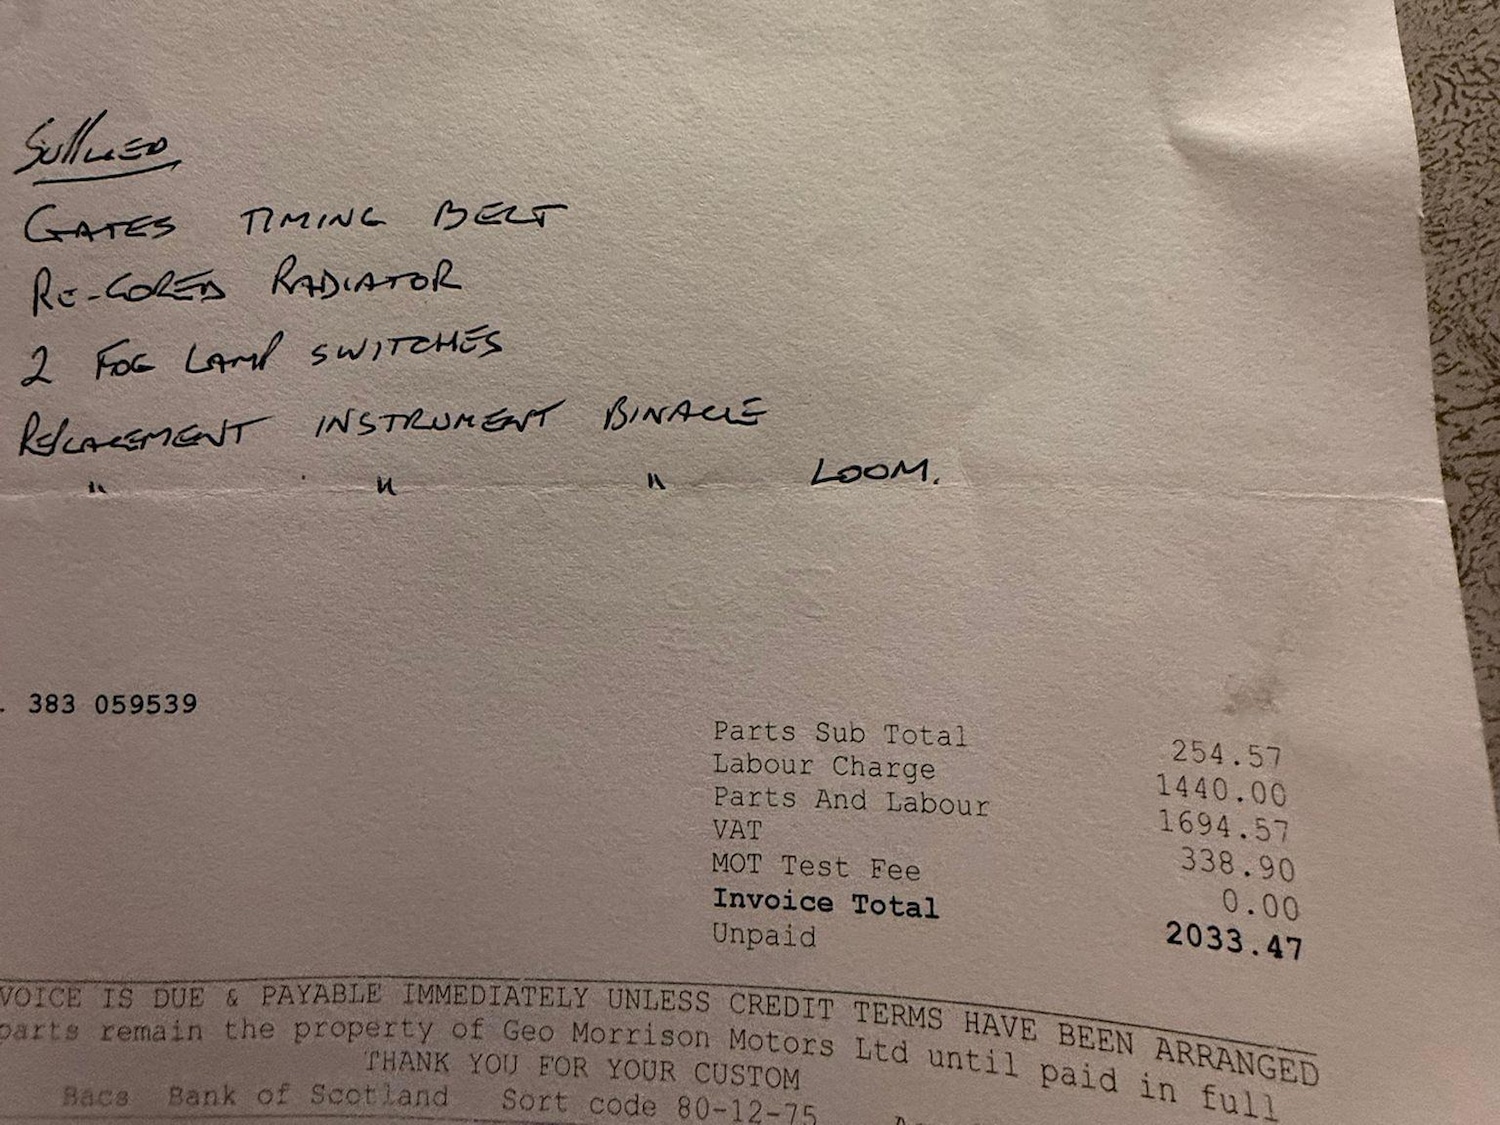 Supplied
GATES TIMING BELT
RE-CORED RADIATOR
2 FOG LAMP SWITCHES
REPLACEMENT INSTRUMENT BINACLE
" " " LOOM.
. 383 059539
Parts Sub Total 254.57
Labour Charge 1440.00
Parts And Labour 1694.57
VAT 338.90
MOT Test Fee 0.00
Invoice Total 2033.47
Unpaid
VOICE IS DUE & PAYABLE IMMEDIATELY UNLESS CREDIT TERMS HAVE BEEN ARRANGED
parts remain the property of Geo Morrison Motors Ltd until paid in full
THANK YOU FOR YOUR CUSTOM
Bacs Bank of Scotland Sort code 80-12-75